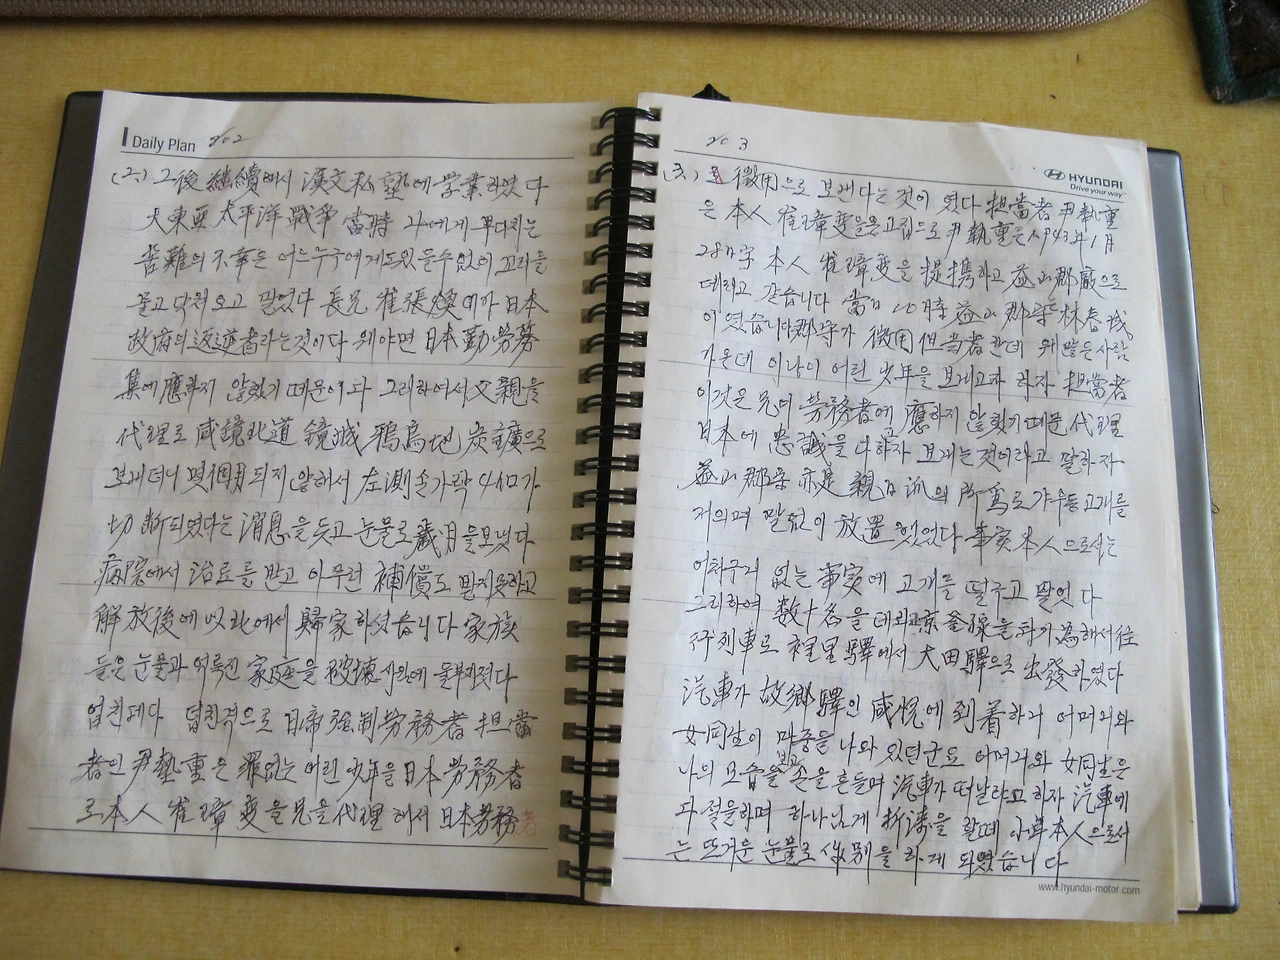 Daily Plan No2
(二.) 그後 継續해서 漢文私塾에 学業하였다
大東亞 太平洋 戰爭 當時 나에게 부다치는
苦難의 不幸은 어느누구에게도있을수없이 꼬리를
물고 닥쳐오고 말았다 長兄 崔張煥 에가 日本
政府의 返逆者라는것이다 왜야면 日本 勤勞務
集에 應하지 않했기 때문이다 그리하여서 父親을
代理로 咸鏡北道 鏡城 鴉烏地 炭鑛으로
보내더니 몇個月 되지 안해서 左測손가락 4섯가
切斷되였다는 消息을 듣고 눈물로 歲月을보냇다
病院에서 治료를 받고 아무런 補償도 받지못하고
解放後에 以北에서 歸家 하섯습니다 家族
들은 눈물과 어륵진 家庭을 破壞 울부지졋다
업친데다 덥친격으로 日帝 强制 労務者 担當
者인 尹執重은 罪없는 어린 少年을 日本 労務者
로 本人 崔璋燮을 兄을 代理 해서 日本 労務者
No 3
HYUNDAI
Drive your way™
(3.) 로 徵用으로 보낸다는 것이 였다 担當者 尹執重
은 本人 崔璋燮을 고집으로 尹執重은 1943年 1月
28日字 本人 崔璋燮을 提携하고 益山郡廳으로
데리고 갔습니다 當時 益山 郡守 林春成
이였습니다 郡守가 徵用 但当者 한데 왜 많은 사람
가운데 이낭이 어린 少年을 보내고자 하자 担當者
이것은 兄이 労務者에 應하지 않했기때문 代理
日本에 忠誠을 다하자 보내는 것이라고 말하자
益山 郡守 亦是 親日 派의 所爲로 갸우등 고개를
저의며 말없이 放置 했었다 事実 本人으로서는
어처구니 없는 事实에 고개를 떨구고 말엇다
그리하여 数十名을 데리고 京釜線을 하기 爲해서 往
行列車로 裡里驛에서 大田驛으로 出發하였다
汽車가 故鄉驛인 咸悅에 到着하니 어머니와
女同生이 마중을 나와 있던군요 어머니와 女同生은
나의 모습을 보고 손을 흔들며 汽車가 떠날라고 하자 汽車에
다 절을하며 하나님게 祈濤을 할때 本人으로서
는 뜨거운 눈물로 作別을 하게 되였습니다
www.hyundai-motor.com